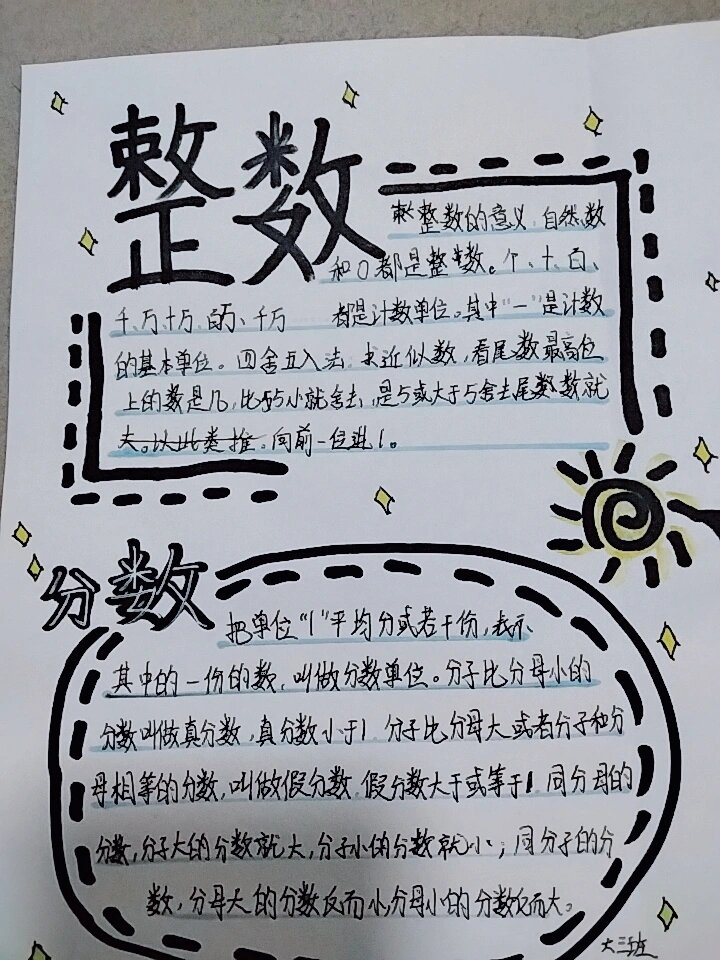 整数
整数的意义，自然数
和0都是整数。个、十、百、
千、万、十万、百万、千万 都是计数单位。其中"一"是计数
的基本单位。四舍五入法，求近似数，看尾数最高位
上的数是几，比5小就舍去，是5或大于5舍去尾数就
向前一位进1。
分数
把单位"1"平均分成若干份，表示
其中的一份的数，叫做分数单位。分子比分母小的
分数叫做真分数，真分数小于1。分子比分母大或者分子和分
母相等的分数，叫做假分数，假分数大于或等于1。同分母的
分数，分子大的分数就大，分子小的分数就小；同分子的分
数，分母大的分数反而小，分母小的分数反而大。
大三班